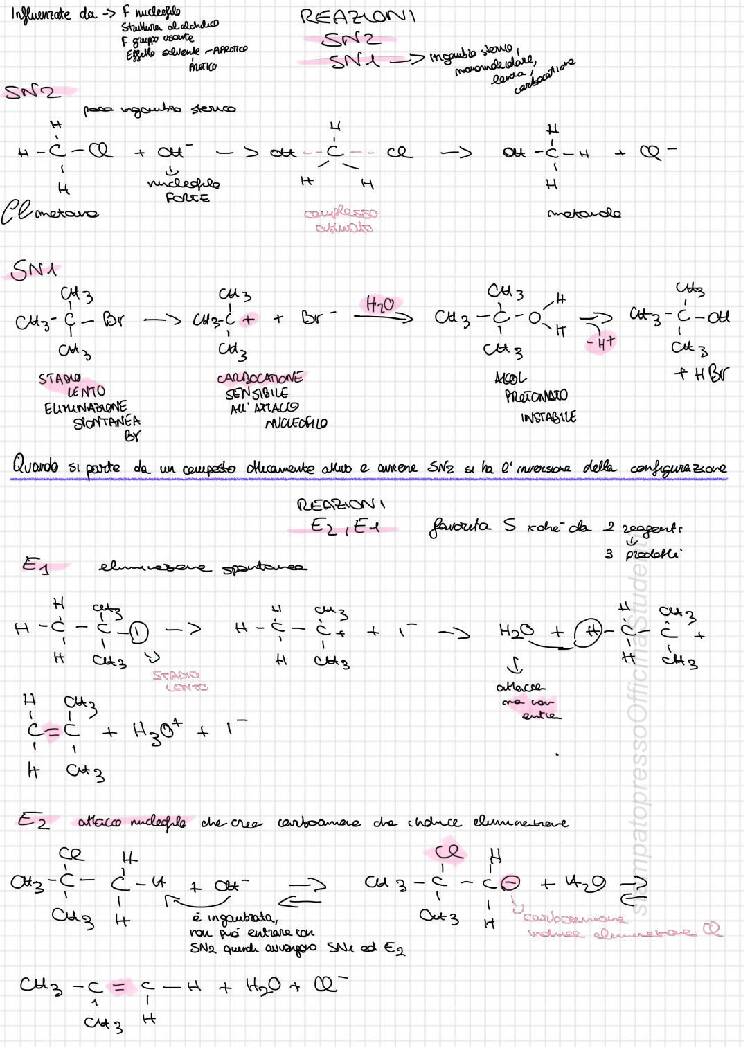 Influenzate da -> F nucleofilo
Struttura alcolchilico
F gruppo uscente
Effetto solvente - APROTICO
PROTICO
REAZIONI
SN2
SN1 -> ingombro sterico,
monomolecolare,
lenta,
carbocatione
SN2
poco ingombro sterico
H H H
H - C - Cl + OH⁻ -> OH --- C --- Cl -> OH - C - H + Cl⁻
H H H H
nucleofilo
FORTE
Cl metano
complesso
attivato
metanolo
SN1
CH3 CH3 CH3 H CH3
CH3 - C - Br -> CH3 - C + + Br⁻ H2O -> CH3 - C - O -> CH3 - C - OH
CH3 CH3 CH3 H -H+ CH3
+ HBr
STADIO
LENTO
ELIMINAZIONE
SPONTANEA
Br
CARBOCATIONE
SENSIBILE
ALL'ATTACCO
NUCLEOFILO
ALCOL
PROTONATO
INSTABILE
Quando si parte da un composto otticamente attivo e avviene SN2 si ha l'inversione della configurazione
REAZIONI
E2, E1 favorita S xchè da 2 reagenti
3 prodotti
E1 eliminazione spontanea
H CH3 H CH3 H CH3
H - C - C - I -> H - C - C + + I⁻ -> H2O + H - C - C +
H CH3 H CH3 H CH3
STADIO
LENTO
attacca
ma non
entra
H CH3
C = C + H3O⁺ + I⁻
H CH3
E2 attacco nucleofilo che crea carboanione che induce eliminazione
Cl H Cl H
CH3 - C - C - H + OH⁻ -> CH3 - C - C - + H2O ->
CH3 H CH3 H
è ingombrata,
non può entrare con
SN2 quindi avvengono SN1 ed E2
carboanione
induce eliminazione Cl
CH3 - C = C - H + H2O + Cl⁻
CH3 H
stampatopressoOfficinaStudenti